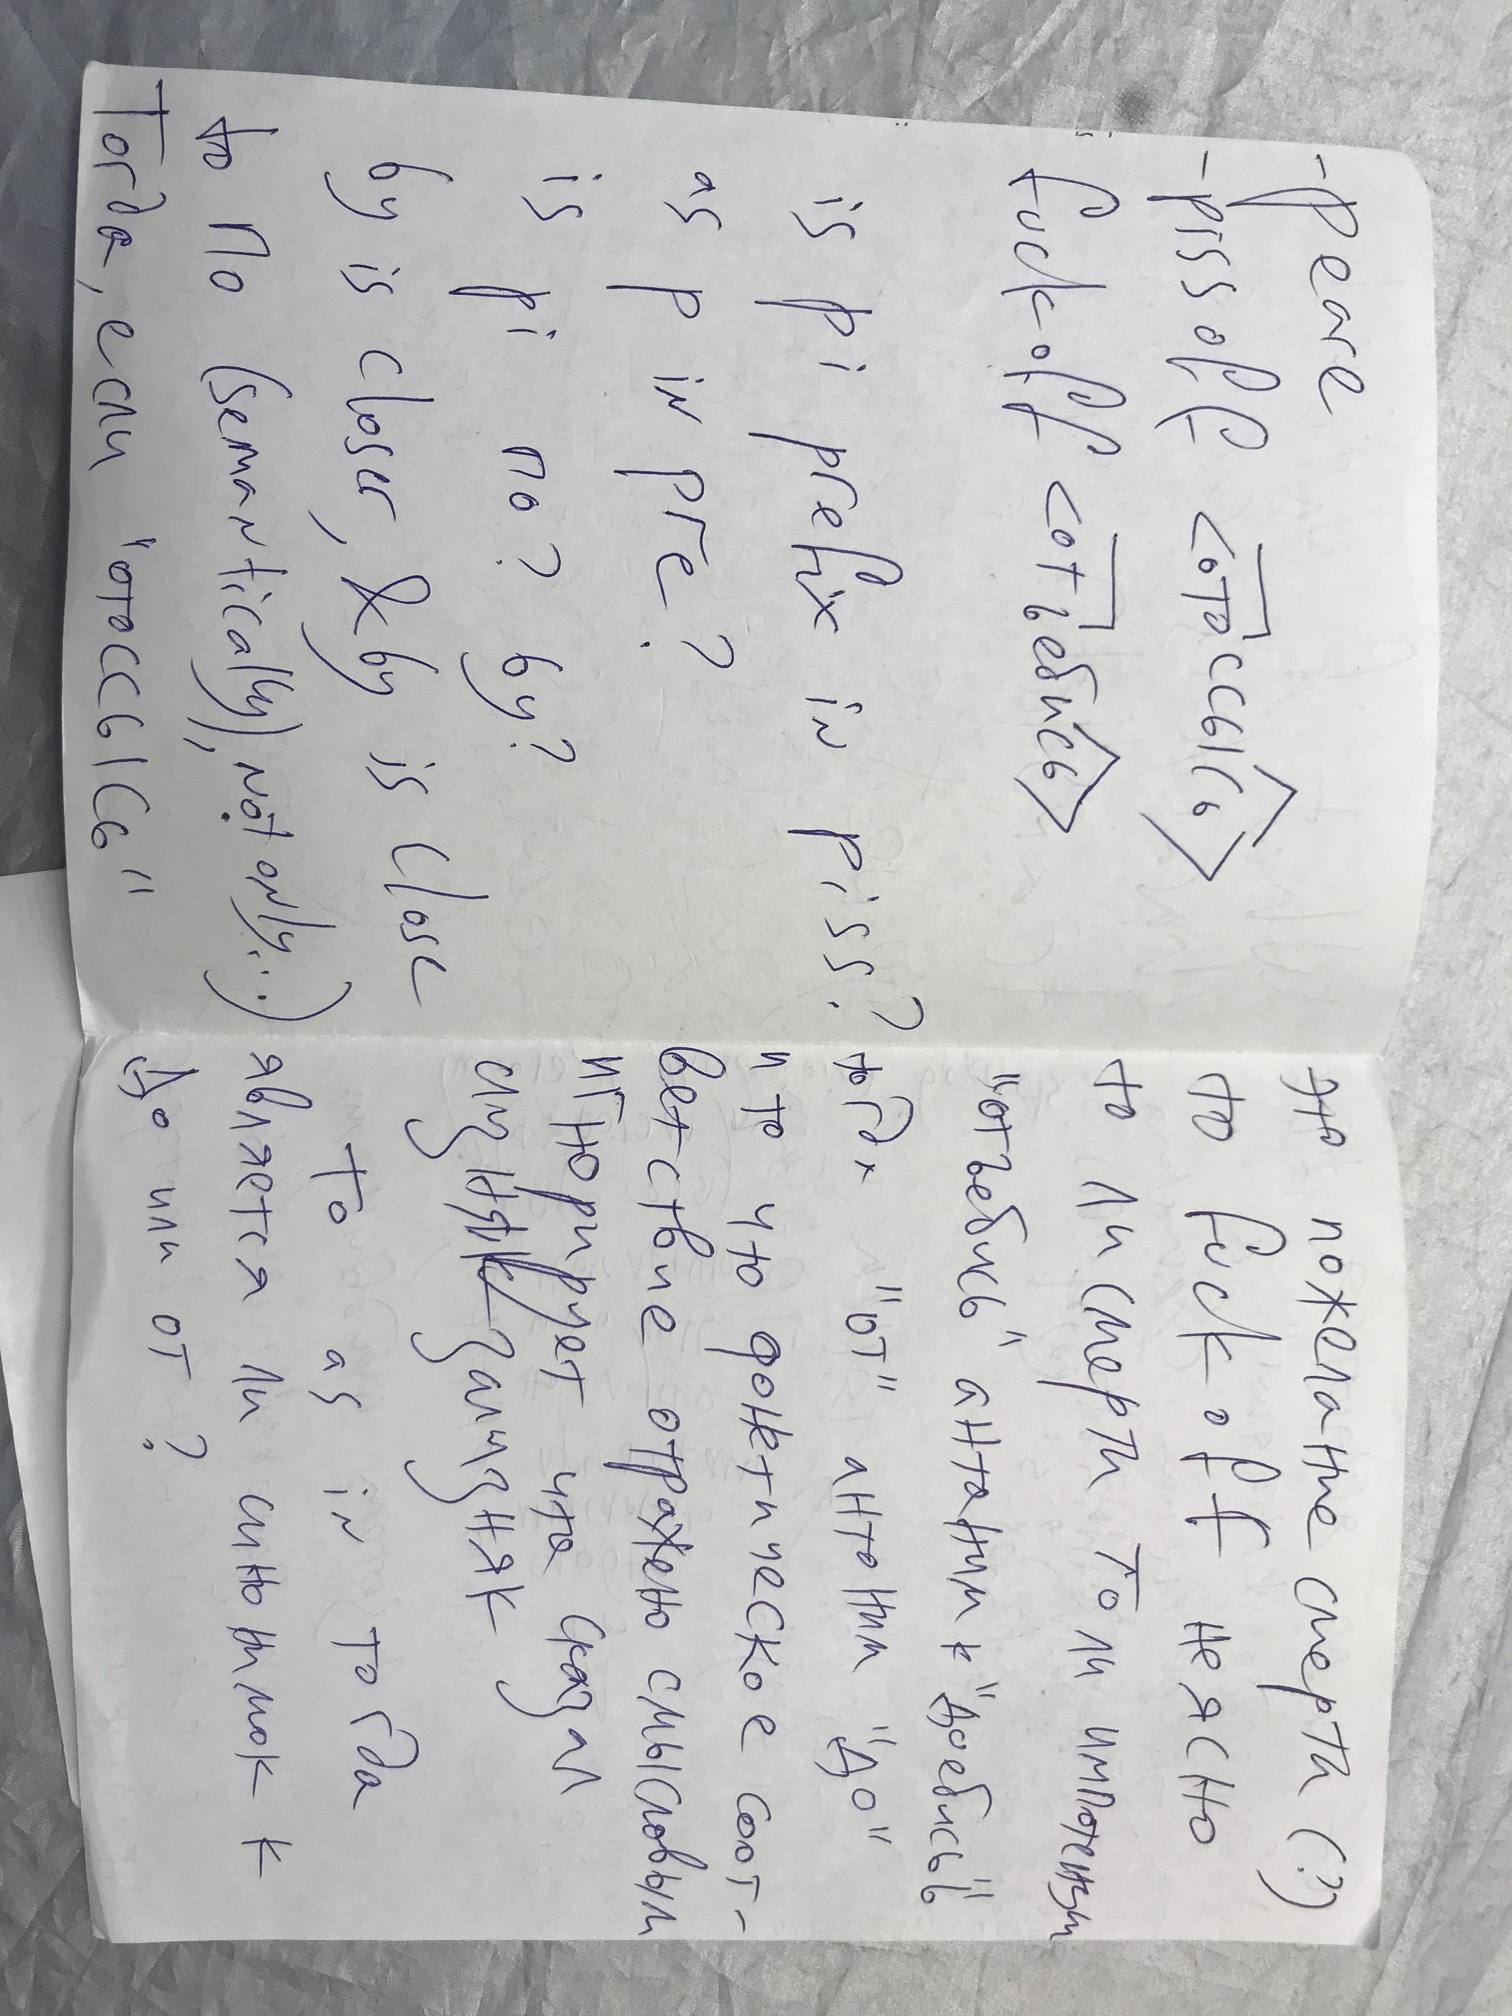 -peare
-piss off <отоссысь>
fuck off <отъебись>
is pi prefix in piss?
as p in pre?
is pi по? by?
by is closer, & by is close
to по (semantically), not only...)
Тогда, если "отоссысь"
это пожелание смерти (?)
то fuck off неясно
то ли смерти то ли импотенции
"отъебись" антоним к "доебись"
тогда "от" антоним "до"
и то что фонетическое соот-
ветствие отражено смысловым
игнорирует что сказал
Лизняк Зализняк
то as in тогда
является ли синонимом к
до или от?